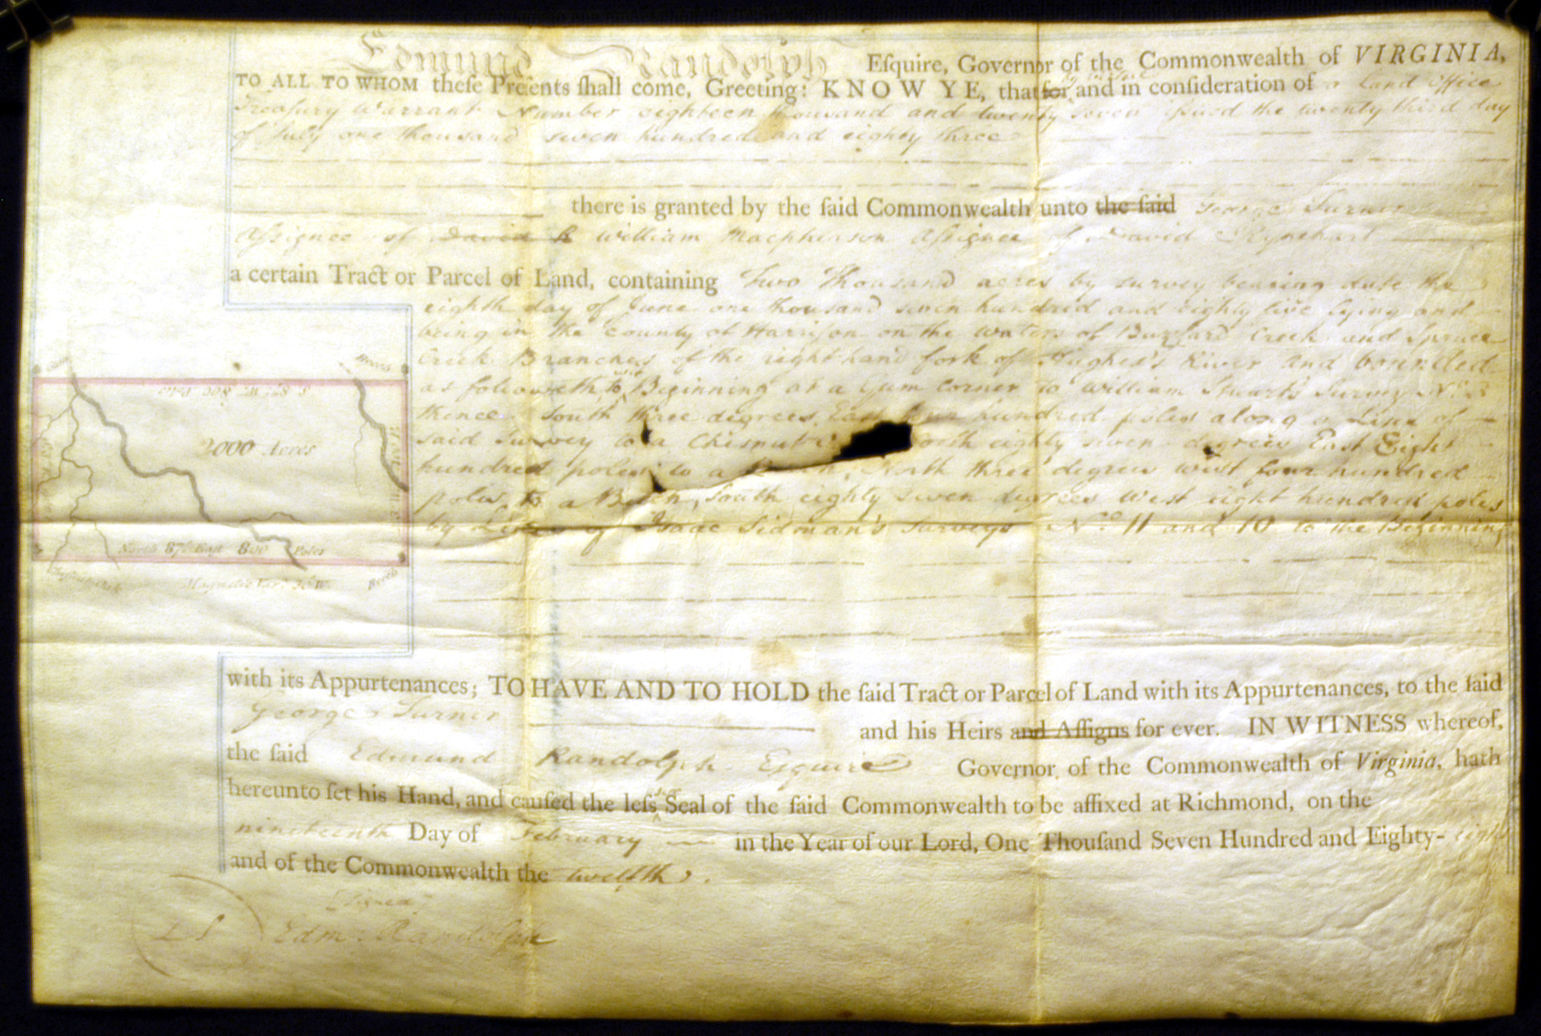 Edmund Randolph Esquire, Governor of the Commonwealth of VIRGINIA,
TO ALL TO WHOM theſe Preſents ſhall come, Greeting: KNOW YE, that for and in conſideration of a Land office
Treasury Warrant Number eighteen thousand and twenty seven issued the twenty third day
of July one thousand seven hundred and eighty three
there is granted by the ſaid Commonwealth unto the ſaid George Turner
Assignee of David William Macpherson Assignee of David
a certain Tract or Parcel of Land, containing Two thousand acres by survey bearing date the
eighth day of June one thousand seven hundred and eighty five lying and
being in the County of Harrison on the waters of Buzzard Creek and Spruce
Creek Branches of the right hand fork of Hughes's River and bounded
as followeth to wit Beginning at a Gum corner to William Stuart's Survey No. 3
thence South three degrees East four hundred poles along a Line of
said Survey to a Chesnut North eighty seven degrees East Eight
hundred poles to a North three degrees west four hundred
poles to a Beech, South eighty seven degrees West eight hundred poles
by Lines of Isaac Sidman's Surveys No. 11 and 10 to the Beginning
2000 Acres
North 87° East 800 Poles
Beech
with its Appurtenances; TO HAVE AND TO HOLD the ſaid Tract or Parcel of Land with its Appurtenances, to the ſaid
George Turner and his Heirs and Aſſigns for ever. IN WITNESS whereof,
the ſaid Edmund Randolph Esquire Governor of the Commonwealth of Virginia, hath
hereunto ſet his Hand, and cauſed the leſs Seal of the ſaid Commonwealth to be affixed at Richmond, on the
nineteenth Day of February in the Year of our Lord, One Thouſand Seven Hundred and Eighty- eight
and of the Commonwealth the twelfth.
Signed
LS Edm: Randolph